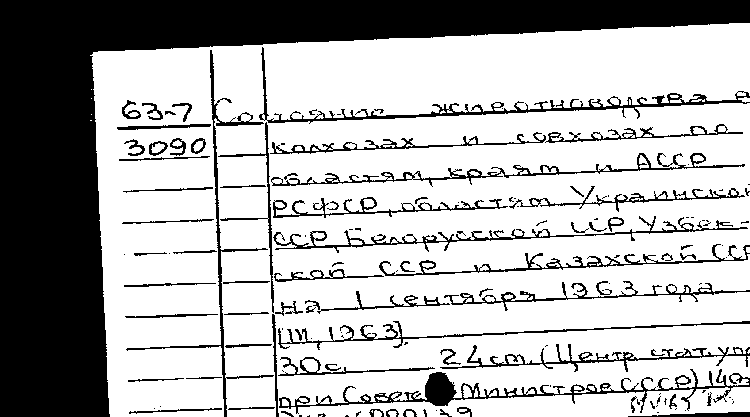 63-7 Состояние животноводства в
3090 колхозах и совхозах по
областям, краям и АССР
РСФСР, областям Украинской
ССР, Белорусской ССР, Узбек-
ской ССР и Казахской ССР
на 1 сентября 1963 года
[М, 1963].
30с. 24см. (Центр. стат. упр
при Совете Министров СССР) 140